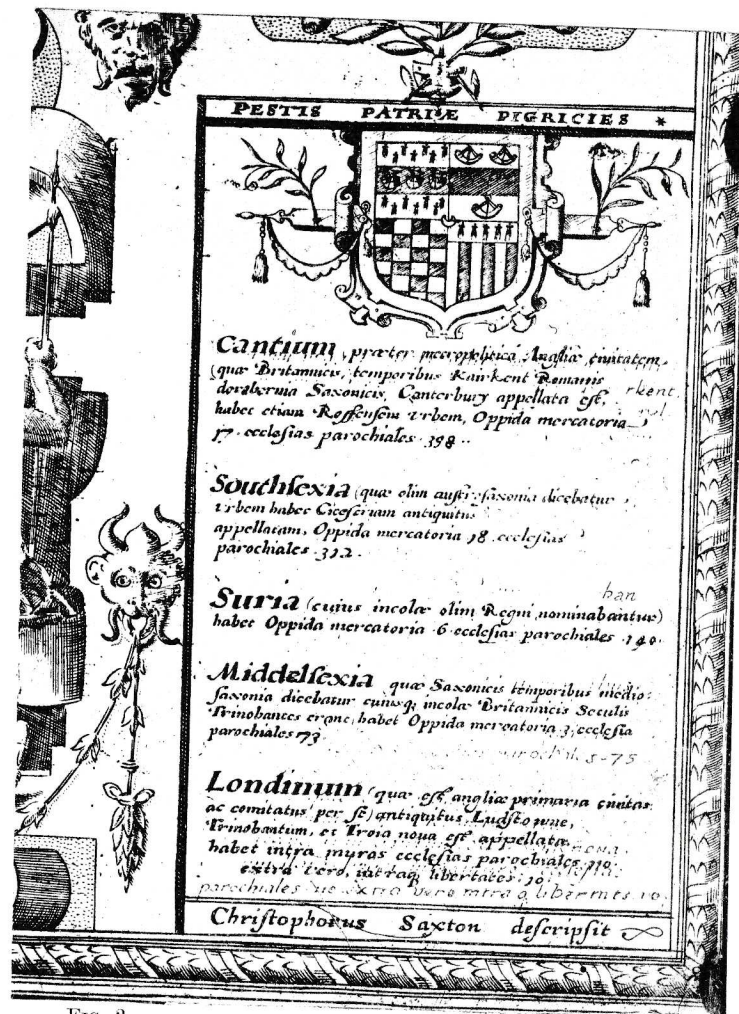 PESTIS PATRIÆ PIGRICIES *
Cantium, præter metropoliticā Angliæ civitatem,
(quæ Britannicis, temporibus Kairkent Romanis
dorobernia Saxonicis, Canterbury appellata est,
rkent
habet etiam Roffensem vrbem, Oppida mercatoria
17. ecclesias parochiales .398..
Southsexia (quæ olim austrysaxonia dicebatur
vrbem habet Cicestriam antiquitus
appellatam, Oppida mercatoria 18. ecclesias
parochiales .312.
ban
Suria (cuius incolæ olim Regni nominabantur)
habet Oppida mercatoria .6. ecclesias parochiales .140.
Middelsexia quæ Saxonicis temporibus medio:
saxonia dicebatur cuiusq; incolæ Britannicis Seculis
Trinobantes erant, habet Oppida mercatoria 3, ecclesia
parochiales 73
s 75
Londinum (quæ est angliæ primaria civitas
ac comitatus per se) antiquitus Ludstowne,
Trinobantum, et Troia nova est appellata
nova
habet intra muros ecclesias parochiales .110.
extra vero, intraq; libertates .10.
parochiales no extra vero intra q libertates 10
Christophorus Saxton descripsit
FIG. 3